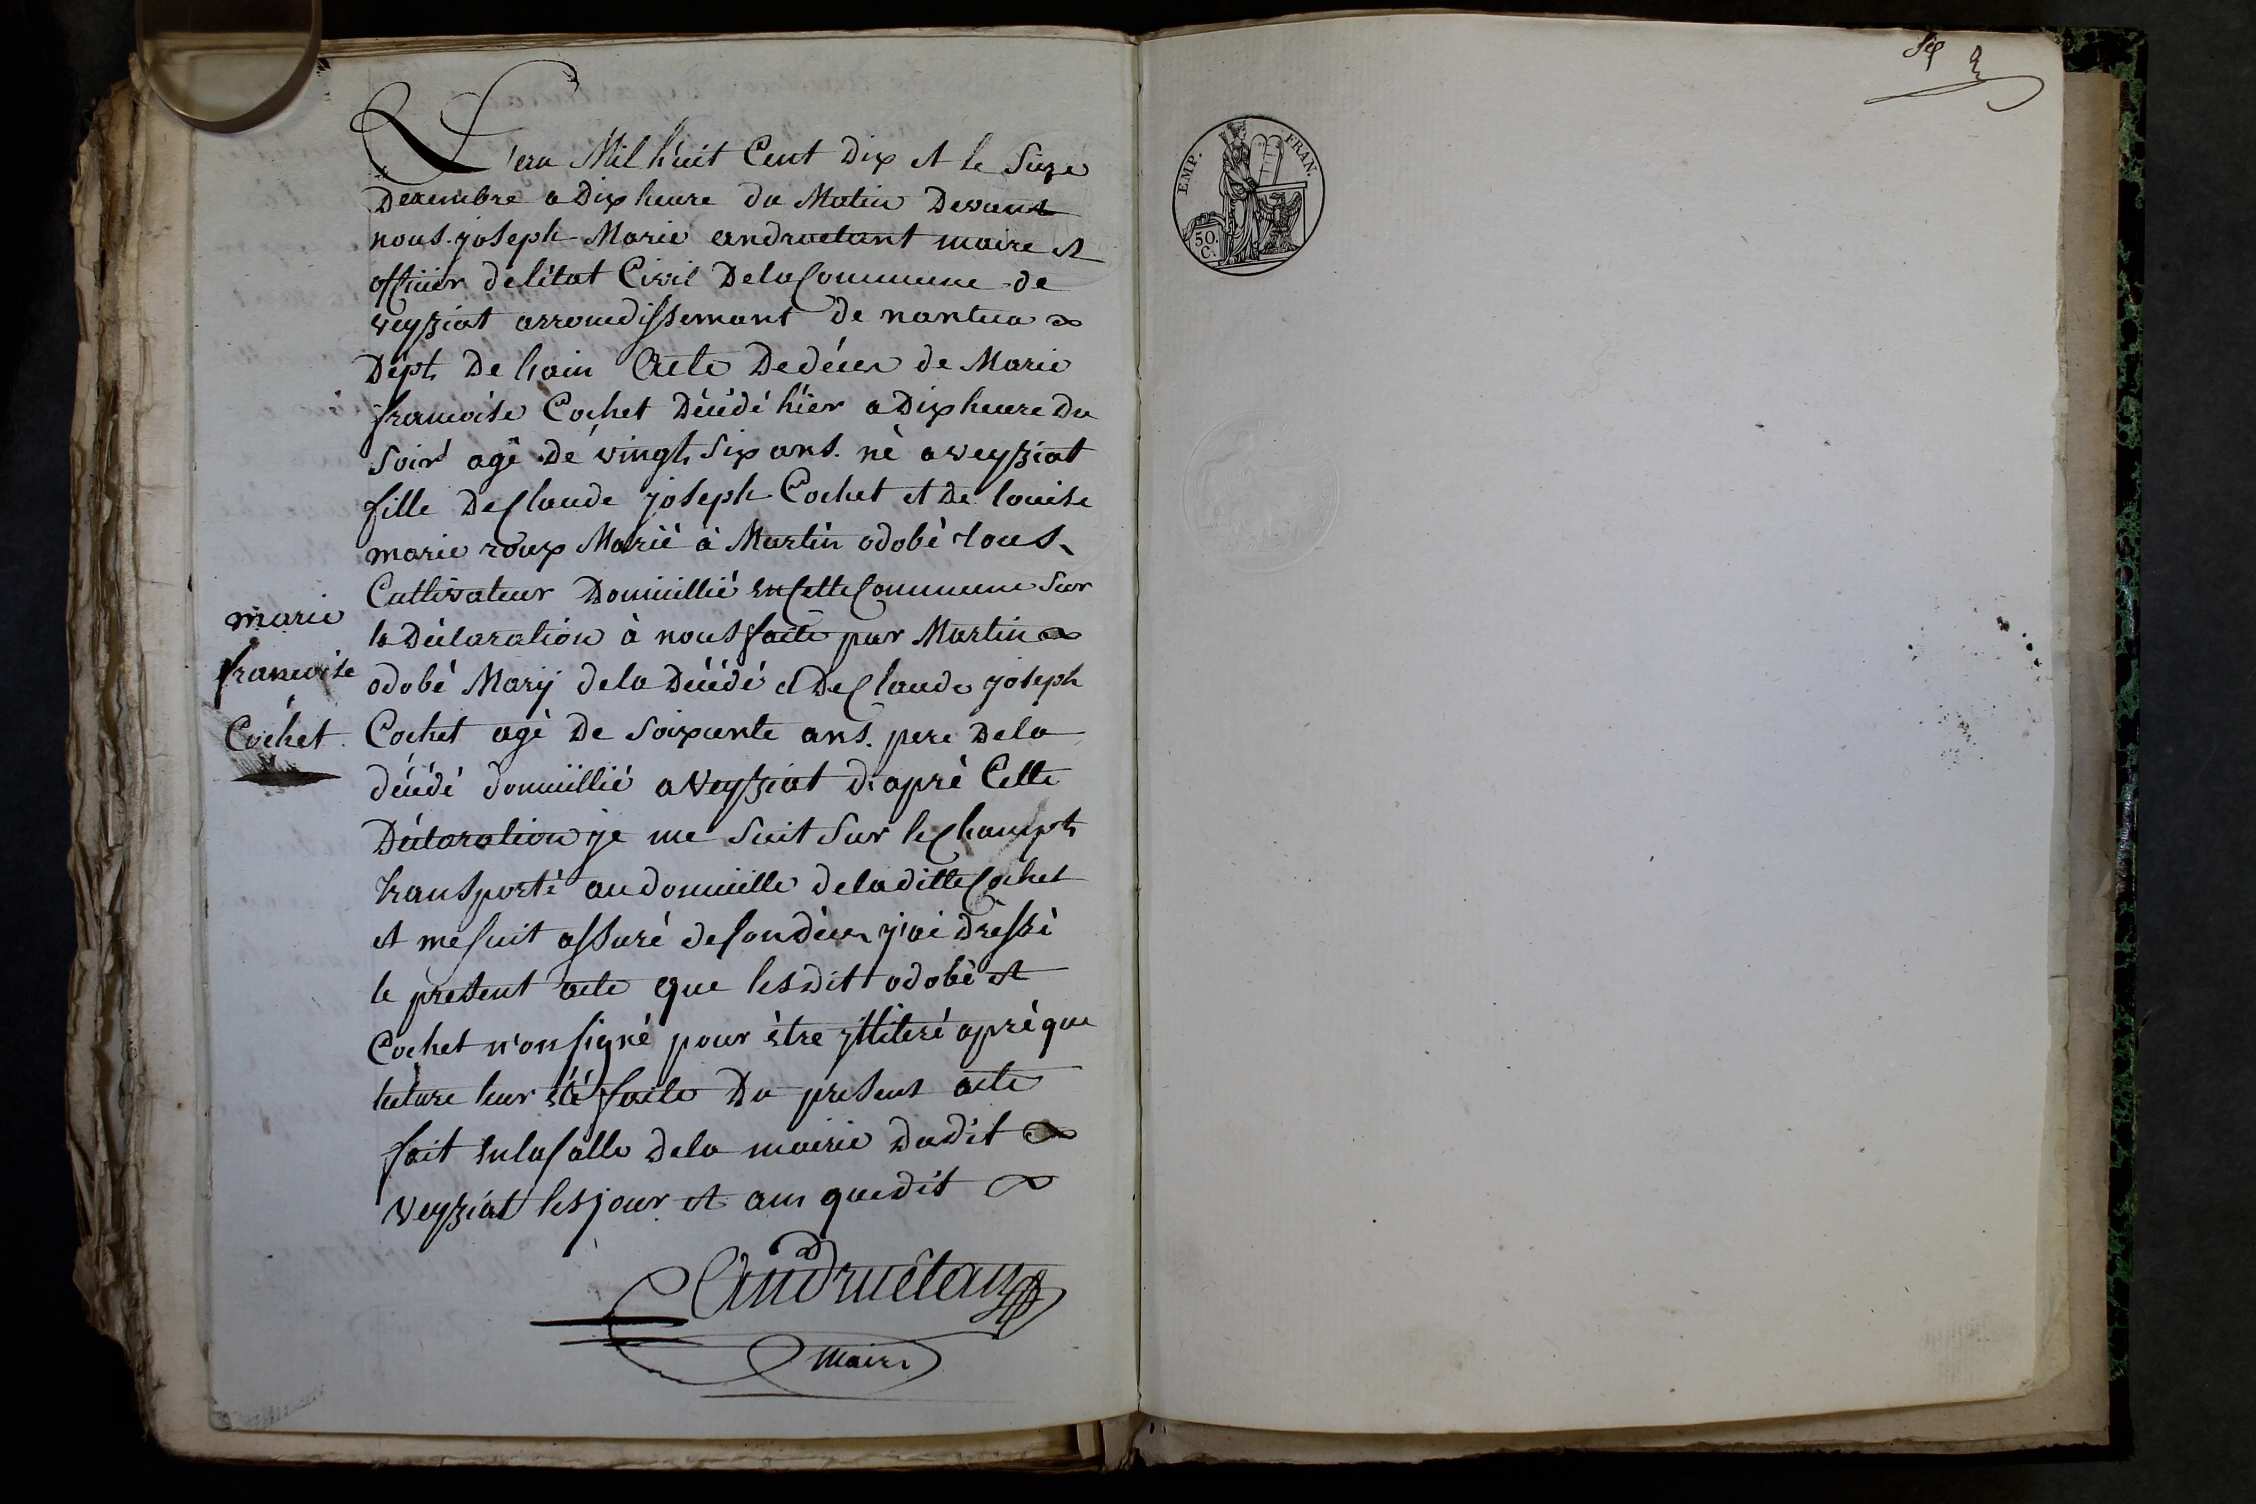 L'eau Mil huit Cent Dix et le Sieze
Decembre a Dix heure du Matin Devant
nous joseph Marie andruetant maire et
officier de l'état Civil De la Commune de
veyziat arrondissement de nantua
Dépt. De l'ain Acte De décer de Marie
francoise Cochet Décédé hier a Dix heure Du
Soir agé de vingt Six ans. né a veyziat
fille De Claude joseph Cochet et De louise
marie roux Marié à Martin odobé tous
Cultivateur Domicillié en Cette Commune Sur
la Déclaration à nous faite par Martin
odobé Marij de la Décédé et De Claude joseph
Cochet agé De Soixante ans. pere De la
décédé domicillié a Veyziat d'aprè Cette
Déclaration je me Suit Sur le Champt
transporté au domicille de la ditte Cochet
et me suit assuré de son décer j'ai dressé
le present acte que les dit odobé et
Cochet n'on signé pour être jlliteré aprè que
lecture leur été faite Du present acte
fait en la Salle de la mairie du dit
Veyziat les jour et an que dit
Andruétan
Maire
marie
francoise
Cochet
EMP. FRAN.
50.
C.